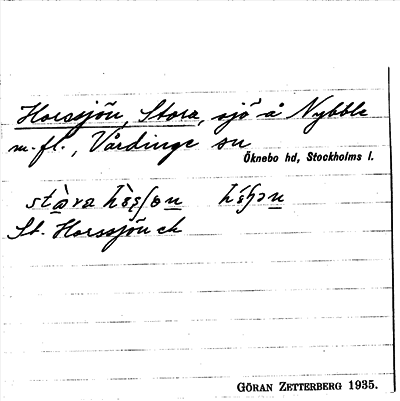 Horssjön, Stora, sjö å Nybble
m.fl., Vårdinge sn
Öknebo hd, Stockholms l.
St. Horssjön ek
GÖRAN ZETTERBERG 1935.